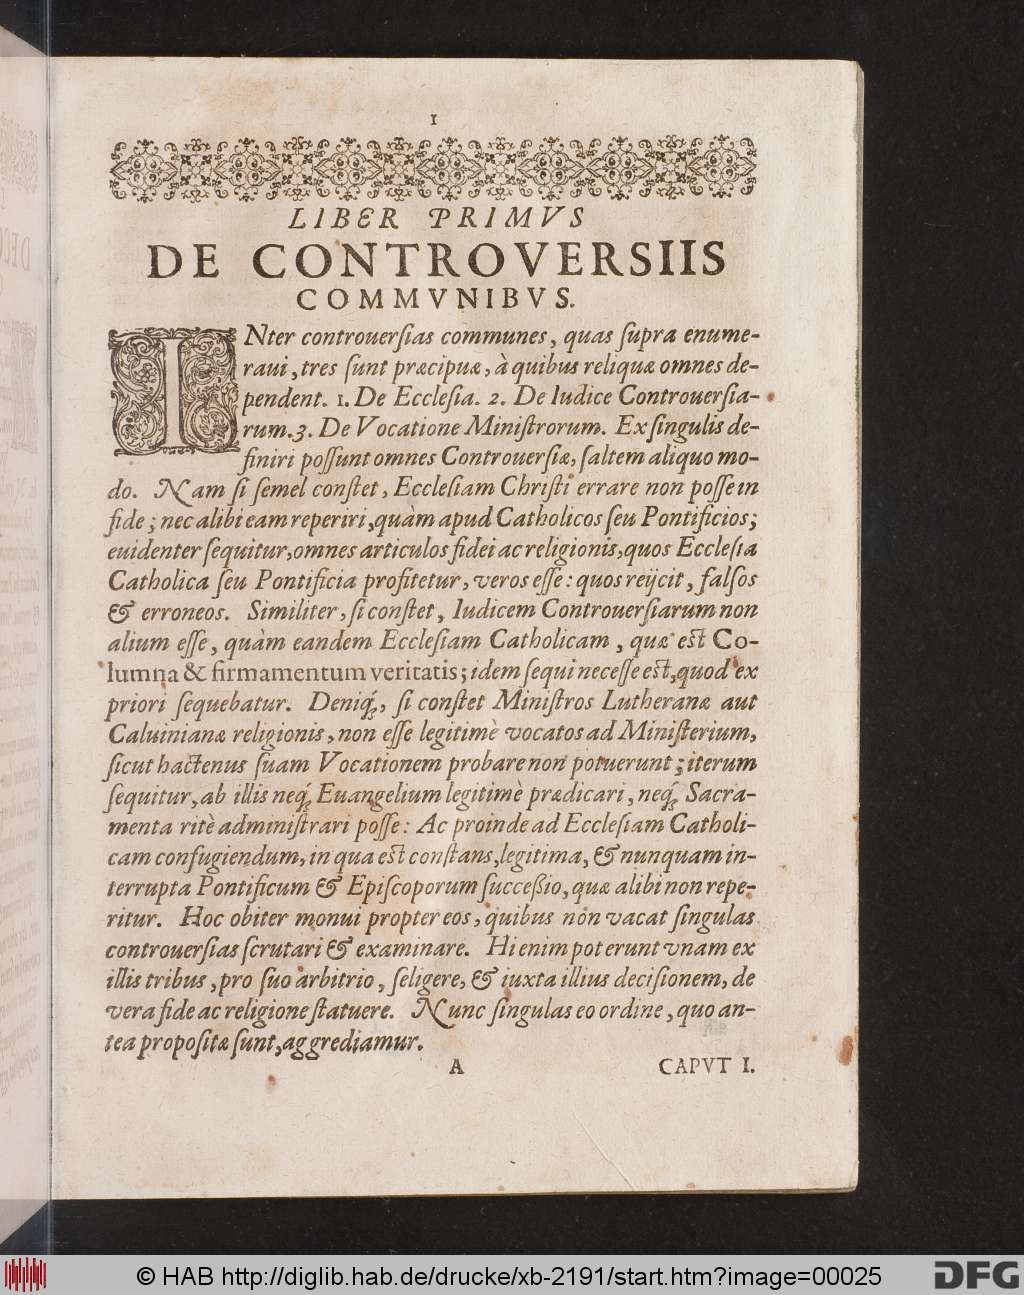 1
LIBER PRIMVS
DE CONTROVERSIIS
COMMVNIBVS.
INter controuerſias communes, quas ſupra enume-
raui, tres ſunt præcipuæ, à quibus reliquæ omnes de-
pendent. 1. De Eccleſia. 2. De Iudice Controuerſia-
rum. 3. De Vocatione Miniſtrorum. Ex ſingulis de-
finiri poſſunt omnes Controuerſiæ, ſaltem aliquo mo-
do. Nam ſi ſemel conſtet, Eccleſiam Chriſti errare non poſſe in
fide; nec alibi eam reperiri, quàm apud Catholicos ſeu Pontificios;
euidenter ſequitur, omnes articulos fidei ac religionis, quos Eccleſia
Catholica ſeu Pontificia profitetur, veros eſſe: quos reijcit, falſos
& erroneos. Similiter, ſi conſtet, Iudicem Controuerſiarum non
alium eſſe, quàm eandem Eccleſiam Catholicam, quæ eſt Co-
lumna & firmamentum veritatis; idem ſequi neceſſe eſt, quod ex
priori ſequebatur. Deniq́;, ſi conſtet Miniſtros Lutheranæ aut
Caluinianæ religionis, non eſſe legitimè vocatos ad Miniſterium,
ſicut hactenus ſuam Vocationem probare non potuerunt; iterum
ſequitur, ab illis neq́; Euangelium legitimè prædicari, neq́; Sacra-
menta ritè adminiſtrari poſſe: Ac proinde ad Eccleſiam Catholi-
cam confugiendum, in qua eſt conſtans, legitima, & nunquam in-
terrupta Pontificum & Epiſcoporum ſucceßio, quæ alibi non repe-
ritur. Hoc obiter monui propter eos, quibus non vacat ſingulas
controuerſias ſcrutari & examinare. Hi enim poterunt vnam ex
illis tribus, pro ſuo arbitrio, ſeligere, & iuxta illius deciſionem, de
vera fide ac religione ſtatuere. Nunc ſingulas eo ordine, quo an-
tea propoſitæ ſunt, aggrediamur.
A CAPVT I.
© HAB http://diglib.hab.de/drucke/xb-2191/start.htm?image=00025
DFG